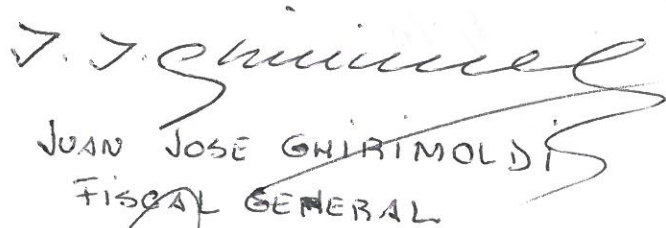 J. J. Ghirimol
JUAN JOSE GHIRIMOLDI
FISCAL GENERAL